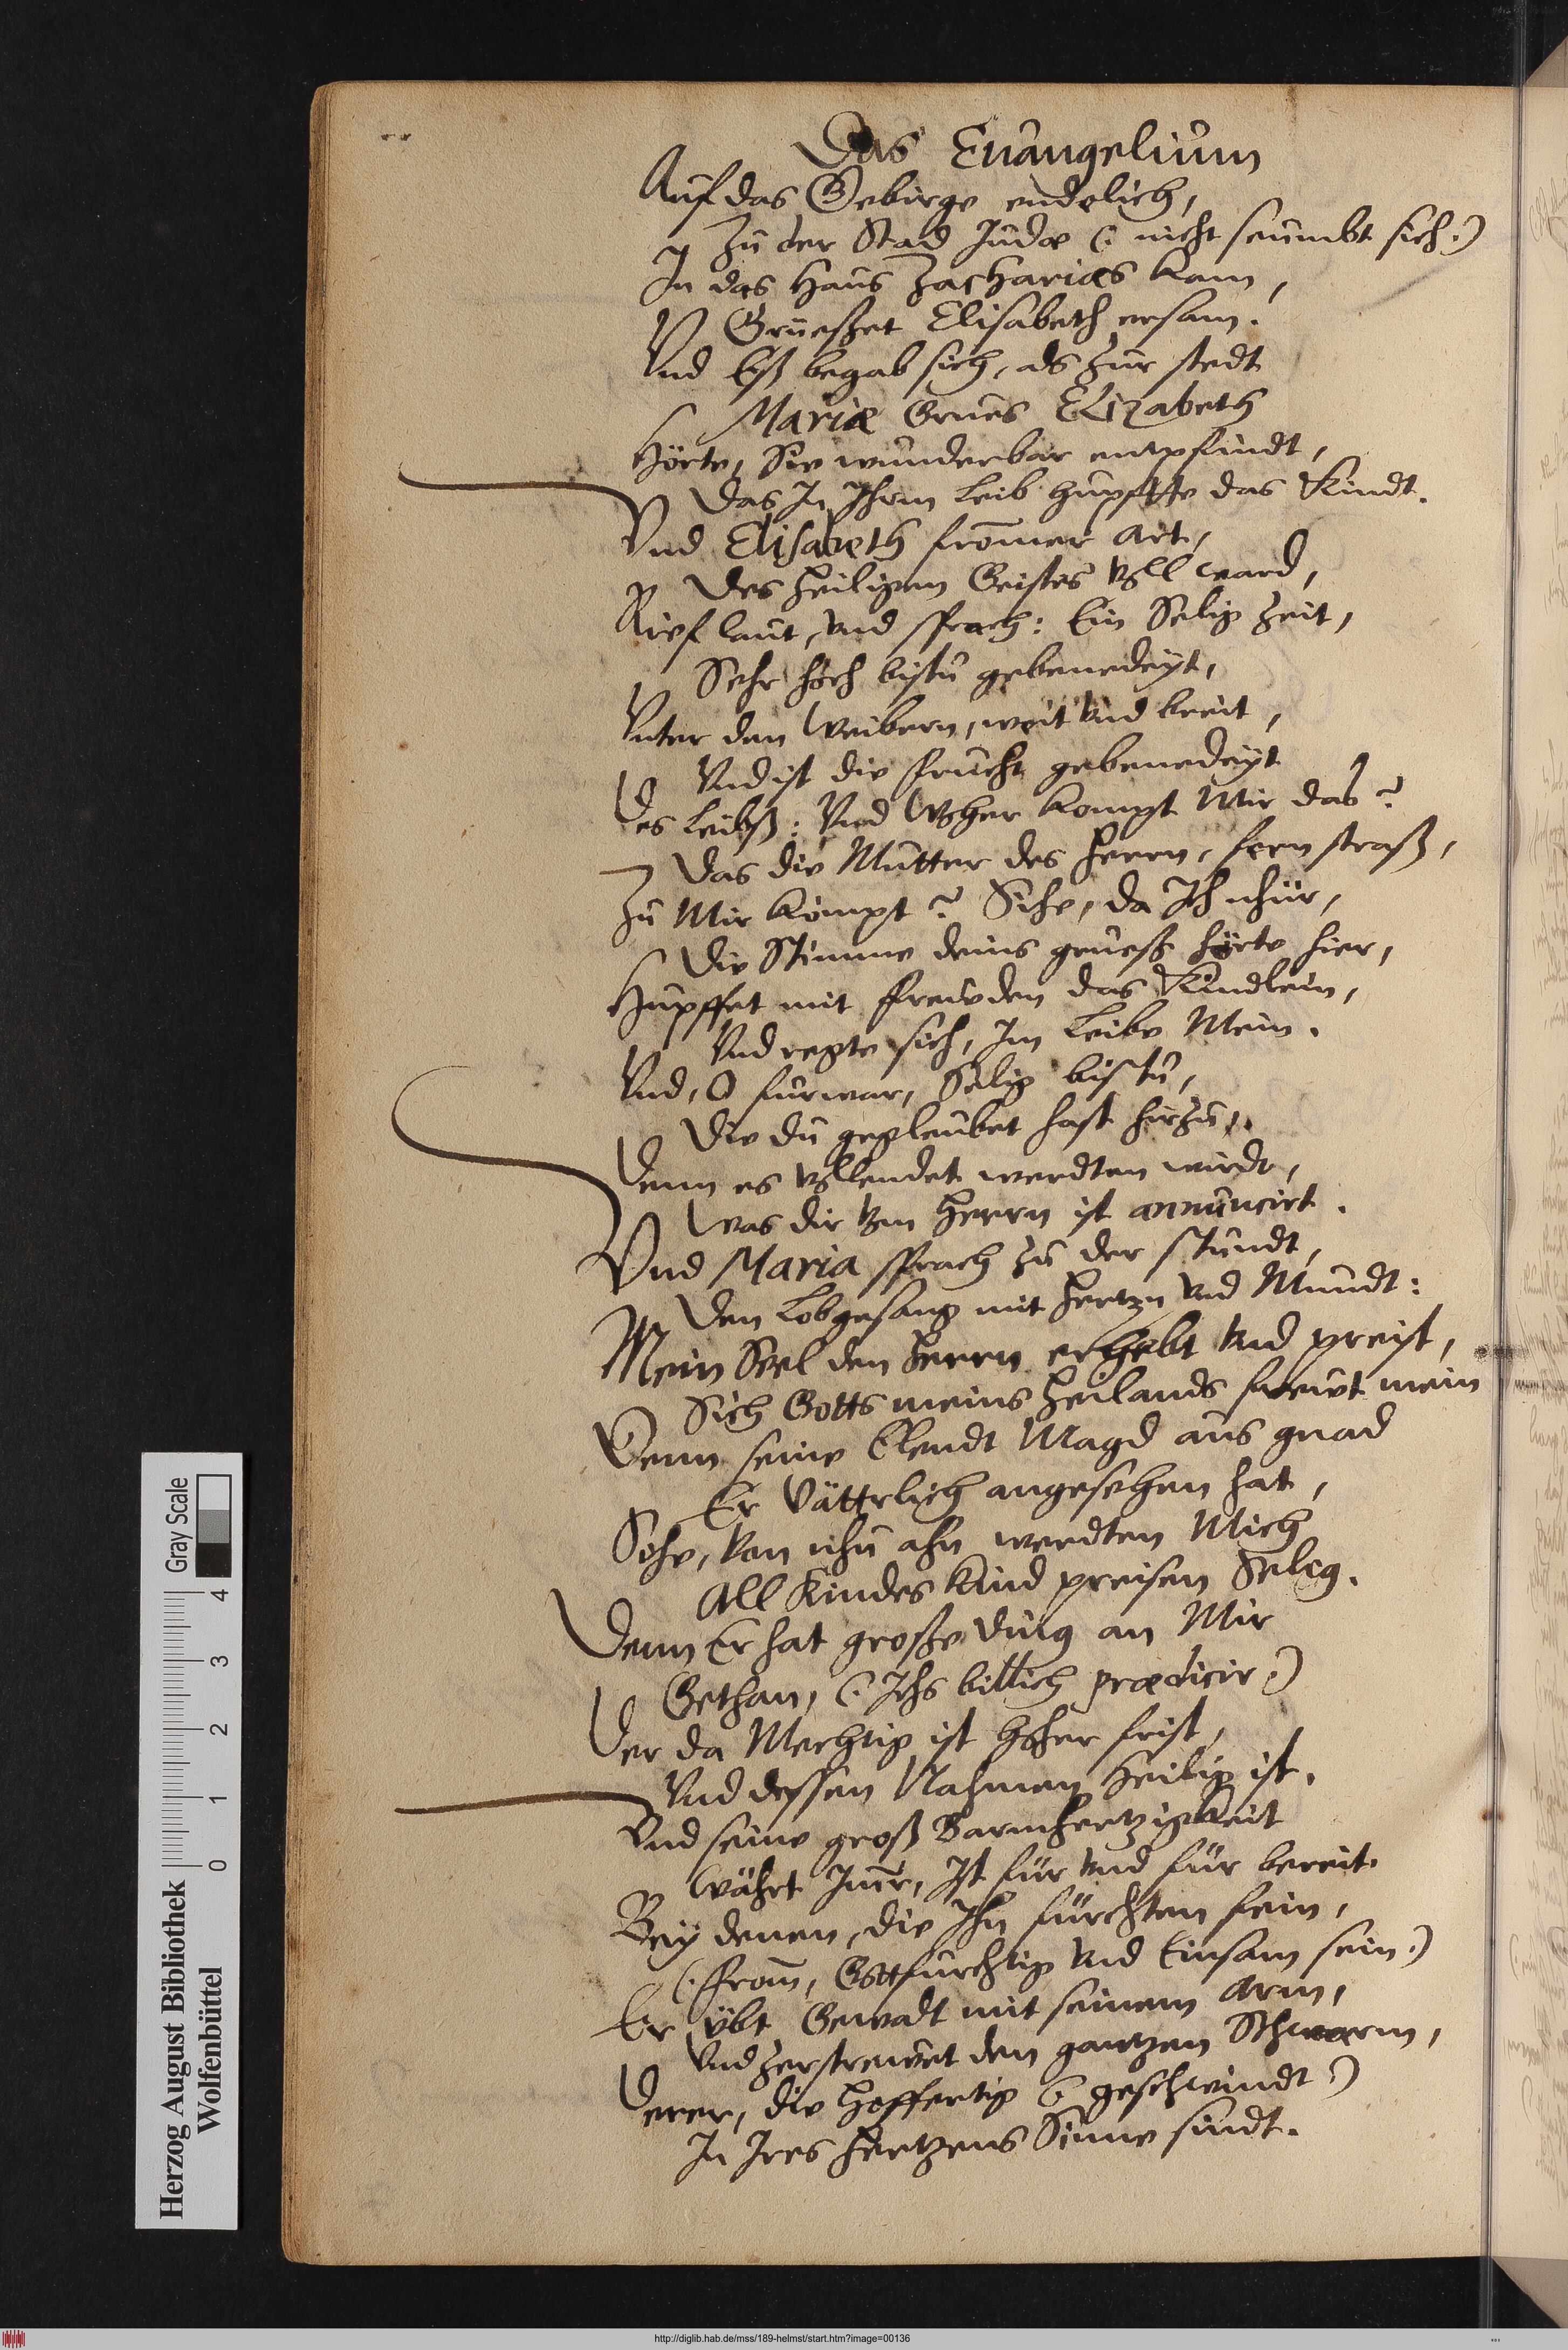 Das Euangelium
Auf das Gebirge endelich,
Zu der Stad Judæ (: nicht seumbt sich :)
In das Haus Zacharias kam,
V Grüeßet Elisabeth ersam.
Vnd Eß begab sich, als zur stedt
Mariæ Grues Elizabeth
Hörte, Sie wunderbar entpfindt,
Das In Ihrm Leib hupffte das Kindt.
Vnd Elisabeth from̄er Art,
Des Heiligen Geistes voll ward,
Rief laut, vnd sprach: Ein Selig Zeit,
Sehr hoch bistu gebenedeyt,
Vnter den Weibern, weit vnd breit,
Vnd ist die frucht gebenedeyt
Des Leibß: Vnd Woher kompt Mir das?
Das die Mutter des Herrn, fern straß,
Zu Mir kompt? Sihe, da Ich nhür,
Die Stimme deins grueß hörte hier,
Hupffet mit freuden das Kindlein,
Vnd regte sich, Im Leibe Mein.
Vnd, O furwar, Selig bistu,
Die du gegleubet hast hirzu,
Denn es vollendet werdten wirdt,
Was dir vom Herrn ist annuncirt.
Vnd Maria sprach zu der stundt,
Den Lobgesang mit Hertzn vnd Mundt:
Mein Seel den Herrn erhebt vnd preist,
Sich Gotts meins Heilands frewt mein
Denn seine Elendt Magd aus gnad
Er Vättrlich angesehen hat,
Sehe, Von nhu ahn werdten Mich
All Kindes Kind preisen Selig.
Denn Er hat große Ding an Mir
Gethan, (: Ichs billich prædicir :)
Der da Mechtig ist hoher frist,
Vnd dessen Nahmen Heilig ist.
Vnd seine groß Barmhertzigkeit
Währt Im̄r, Ist für vnd für bereit
Bey denen, die Ihn fürchten fein,
(: from̄, Gottfürchtig vnd Einsam sein :)
Er übt Gewalt mit seinem Arm,
Vnd zerstrewet den gantzen Schwarm,
Derer, die Hoffertig (: geschwindt :)
In Ires Hertzens Sinne sindt.
Herzog August Bibliothek
Wolfenbüttel
0 1 2 3 4
Gray Scale
http://diglib.hab.de/mss/189-helmst/start.htm?image=00136